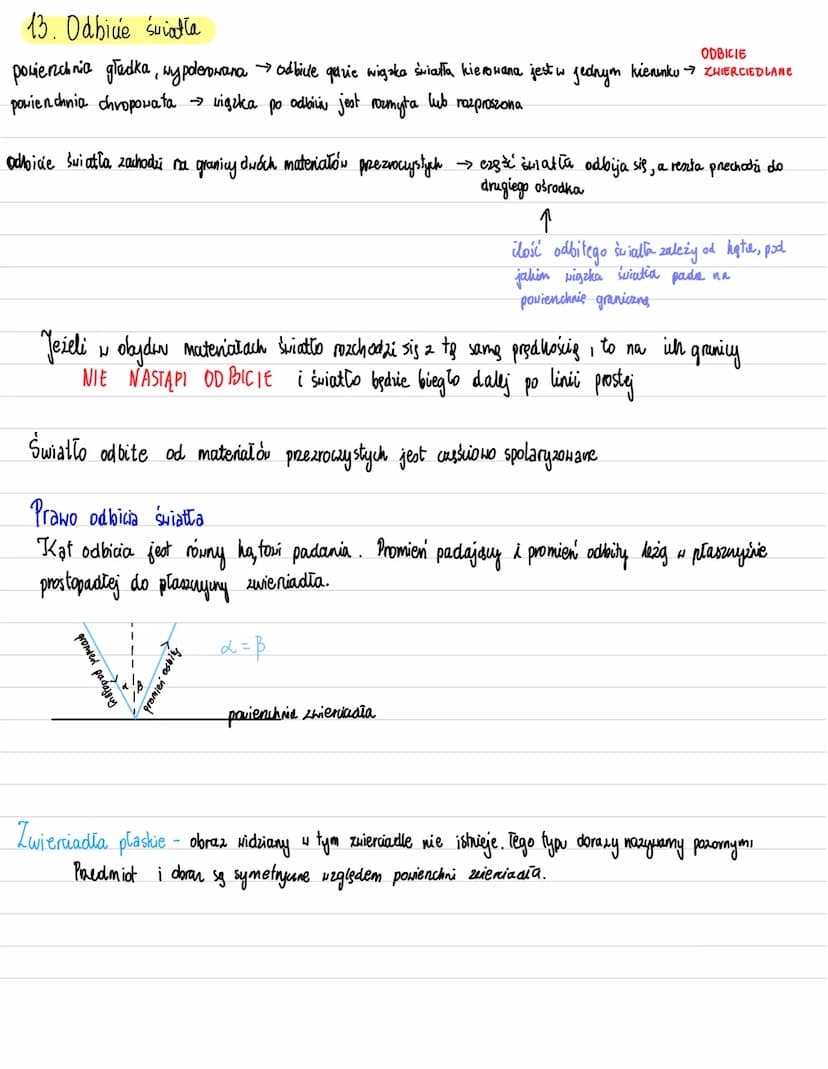 13. Odbicie światła
powierzchnia gładka, wypolerowana → odbicie gdzie wiązka światła kierowana jest w jednym kierunku → ODBICIE ZWIERCIEDLANE
powierzchnia chropowata → wiązka po odbiciu jest rozmyta lub rozproszona
odbicie światła zachodzi na granicy dwóch materiałów przezroczystych → część światła odbija się, a reszta przechodzi do
drugiego ośrodka
↑
ilość odbitego światła zależy od kąta, pod
jakim wiązka światła pada na
powierzchnię graniczną
Jeżeli w obydwu materiałach światło rozchodzi się z tą samą prędkością, to na ich granicy
NIE NASTĄPI ODBICIE i światło będzie biegło dalej po linii prostej
Światło odbite od materiałów przezroczystych jest częściowo spolaryzowane
Prawo odbicia światła
Kąt odbicia jest równy kątowi padania. Promień padający i promień odbity leżą w płaszczyźnie
prostopadłej do płaszczyzny zwierciadła.
promień padający
α
β
promień odbity
α = β
powierzchnia zwierciadła
Zwierciadła płaskie - obraz widziany w tym zwierciadle nie istnieje. Tego typu obrazy nazywamy pozornymi
Przedmiot i obraz są symetryczne względem powierzchni zwierciadła.